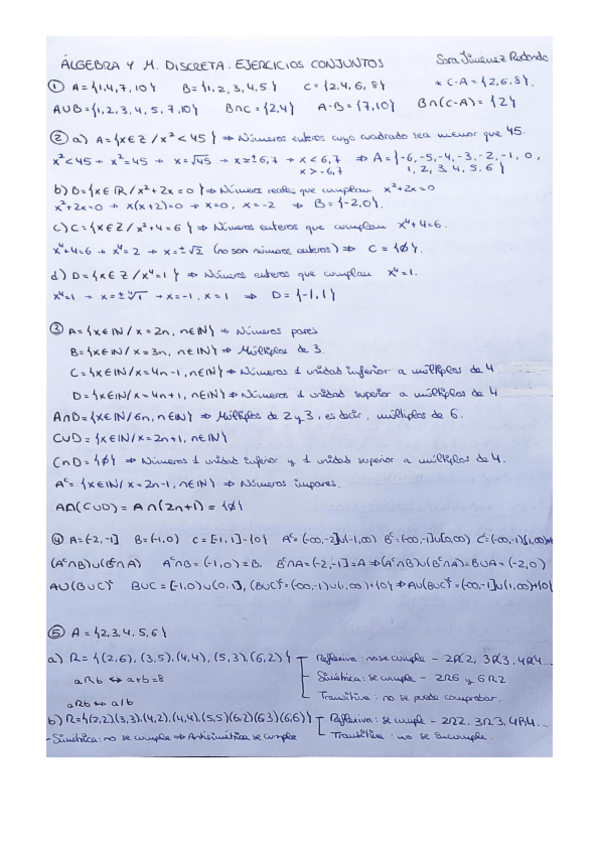 ÁLGEBRA Y M. DISCRETA: EJERCICIOS CONJUNTOS Sara Jiménez Redondo
① A={1,4,7,10} B={1,2,3,4,5} C={2,4,6,8} * C-A={2,6,8}.
A∪B={1,2,3,4,5,7,10} B∩C={2,4} A-B={7,10} B∩(C-A)={2}
② a) A={x∈Z / x²<45} ⇒ Números enteros cuyo cuadrado sea menor que 45.
x²<45 → x²=45 → x=√45 → x=±6,7 → x<6,7 ⇒ A={-6,-5,-4,-3,-2,-1,0,
x>-6,7 1,2,3,4,5,6}
b) B={x∈ℝ/x²+2x=0} ⇒ Números reales que cumplan x²+2x=0
x²+2x=0 → x(x+2)=0 → x=0, x=-2 ⇒ B={-2,0}.
c) C={x∈Z/x⁴+4=6} ⇒ Números enteros que cumplan x⁴+4=6.
x⁴+4=6 → x⁴=2 → x=±√2 (no son números enteros) ⇒ C={∅}.
d) D={x∈Z/x⁴=1} ⇒ Números enteros que cumplan x⁴=1.
x⁴=1 → x=±⁴√1 → x=-1, x=1 ⇒ D={-1,1}
③ A={x∈ℕ/x=2n, n∈ℕ} ⇒ Números pares
B={x∈ℕ/x=3n, n∈ℕ} ⇒ Múltiplos de 3.
C={x∈ℕ/x=4n-1, n∈ℕ} ⇒ Números 1 unidad inferior a múltiplos de 4
D={x∈ℕ/x=4n+1, n∈ℕ} ⇒ Números 1 unidad superior a múltiplos de 4
A∩B={x∈ℕ/6n, n∈ℕ} ⇒ Múltiplos de 2 y 3, es decir, múltiplos de 6.
C∪D={x∈ℕ/x=2n+1, n∈ℕ}
C∩D={∅} ⇒ Números 1 unidad inferior y 1 unidad superior a múltiplos de 4.
Aᶜ={x∈ℕ/x=2n-1, n∈ℕ} ⇒ Números impares.
A∩(C∪D)=A∩(2n+1)={∅}
④ A=(-2,-1] B=(-1,0) C=[-1,1]-{0} Aᶜ=(-∞,-2]∪(-1,∞) Bᶜ=(-∞,-1]∪[0,∞)
(Aᶜ∩B)∪(Bᶜ∩A) Aᶜ∩B=(-1,0)=B. Bᶜ∩A=(-2,-1]=A ⇒ (Aᶜ∩B)∪(Bᶜ∩A)=B∪A=(-2,0)
A∪(B∪C)ᶜ B∪C=[-1,0)∪(0,1], (B∪C)ᶜ=(-∞,-1)∪(1,∞)+{0} ⇒ A∪(B∪C)ᶜ=(-∞,-1]∪(1,∞)+{0}
⑤ A={2,3,4,5,6}
a) R={(2,6),(3,5),(4,4),(5,3),(6,2)} → Reflexiva: no se cumple - 2R̸2, 3R̸3, 4R4...
aRb ↔ a+b=8 Simétrica: se cumple - 2R6 y 6R2
aRb ↔ a/b Transitiva: no se puede comprobar.
b) R={(2,2),(3,3),(4,2),(4,4),(5,5)(6,2)(6,3)(6,6)} Reflexiva: se cumple - 2R2, 3R3, 4R4...
-Simétrica: no se cumple ⇒ Antisimétrica se cumple Transitiva: no se